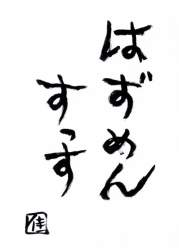 はずめん
すっす
佳